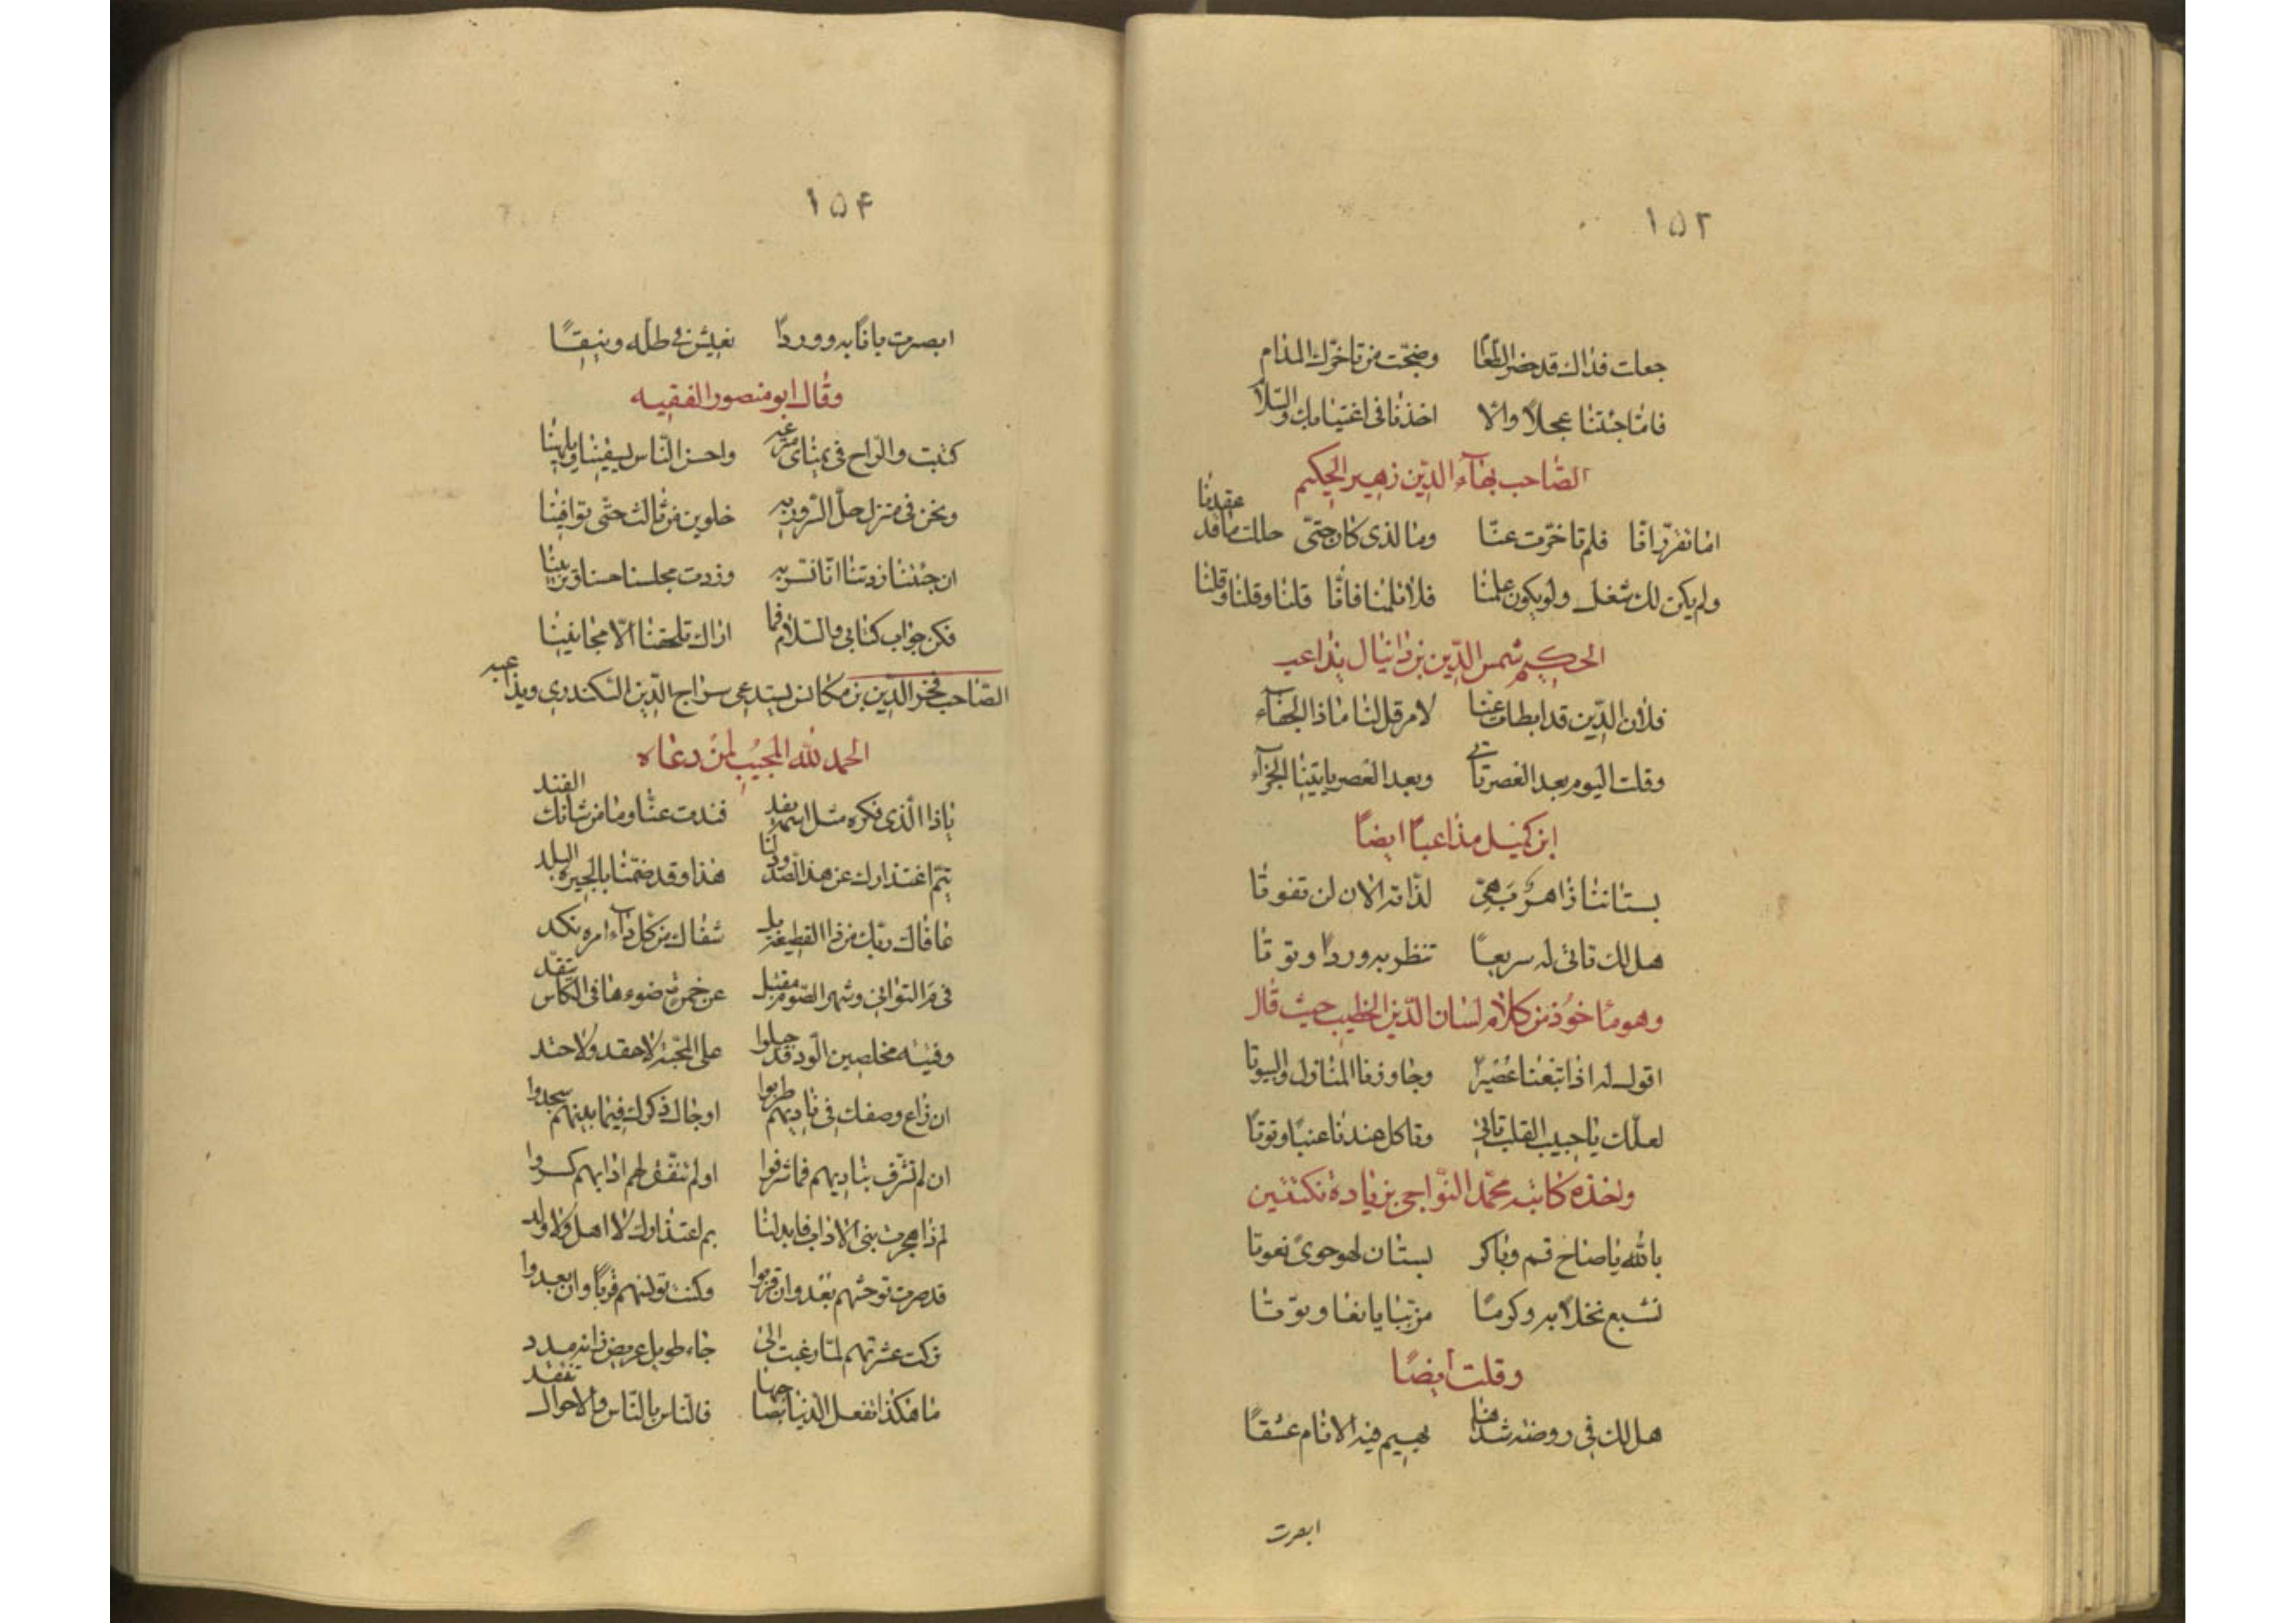 ١٥٢
جعلت فداك قد حضر الطعام وضجّت من تاخّرك المدام
فامّا جئتنا عجلاً والّا اخذنا فى اغتيابك والسّلام
الصّاحب بهآء الدّين زهير الحكيم
انا تفرّ افا فلم تاخّرت عنّا وما الذى كان حتىّ حللت ما قد عقدنا
ولم يكن لك شغل ولو يكون علمنا فلا تلمنا فانّا قلنا وقلنا وقلنا
الحكيم شمس الدّين بن دانيال يداعب
فلان الدّين قد ابطات عنا لامر قل لنا ماذا الجفآء
وقلت اليوم بعد العصر تأتى وبعد العصر ياتينا الجزآء
ابن كميل مذاعباً ايضاً
بستاننا ذا هر بهىّ لذّاته الان لن تفوتا
هل لك تاتى له سريعاً تنظر به وردا وتوتا
وهو ماخوذ من كلام لسان الدّين الخطيب حيث قال
اقول له اذا تبعنا عُصَيراً وجاوزنا المنازل والبيوتا
لعلّك يا حبيب القلب تاتى وتاكل عندنا عنباً وتوتاً
واخذه كاتبه محمّد النّواجى بزيادة نكتتين
بالله يا صاح قم وباكر بستان لهو حوى نعوتا
نشبع نخلاً به وكرماً مرتّبا يانعا وتوّتا
وقلت ايضاً
هل لك فى روضة شذاها يهيم فيه الانام عشقاً
ابصرت
١٥۴
ابصرت بانًا به ووردًا نعيش فى ظلّه ونبقًا
وقال ابو منصور الفقيه
كتبت والرّاح فى يمناى مترعه واحسن النّاس يسقينا ويلهينا
ونحن فى منزل حلّ السّرور به خلوين من ثالث حتّى توافينا
ان جئتنا زدتنا انّا نسّر به وزدت مجلسنا حسنا وتزيينا
فكن جواب كتابى والسّلام فما اراك تلحقنا الّا مجانينا
الصّاحب فخر الدّين بن مكانس يستدعى سراج الدّين السكندرى ويذاعبه
الحمد لله المجيب لمن دعاه
ياذا الّذى فكره مثل اسمه يقد فندت عنّا وما من شانك الفند
يتم اعتذارك عن هذا الصّدود لنا هذا وقد ضمّنا بالجيرة البلد
عافاك ربّك من ذا القطيعة بل شفاك من كل دآء امره نكد
فى مَ التوانى وشهر الصّوم مقتبل عن خمرة ضوءها فى الكاس يتّقد
وفتيه مخلصين الودّ قد جبلوا على المحبّة لا حقد ولا حسد
ان ذاع وصفك فى ناديهم طربوا او جال ذكرك فيما بينهم سجدوا
ان لم تشّرف بناديهم فما شرفوا او لم تنفّق لهم ادابهم كسدوا
لم ذا هجرت بنى الاداب فابد لنا بم اعتذارك لا اهل ولا ولد
قد صرت توحشهم بعد وان قربوا وكنت تونسهم قرباً وان بعدوا
تركت عشرتهم لمّا رغبت الى جاه طويل عريض زانه مدد
ما هكذا تفعل الدّنيا بصاحبها فالنّاس بالنّاس والاحوال تفتقد